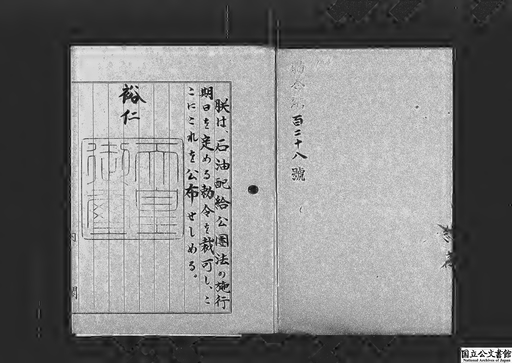 勅令第百二十八號
朕は、石油配給公團法の施行
期日を定める勅令を裁可し、こ
こにこれを公布せしめる。
裕仁
天皇
御璽
内閣
国立公文書館
National Archives of Japan